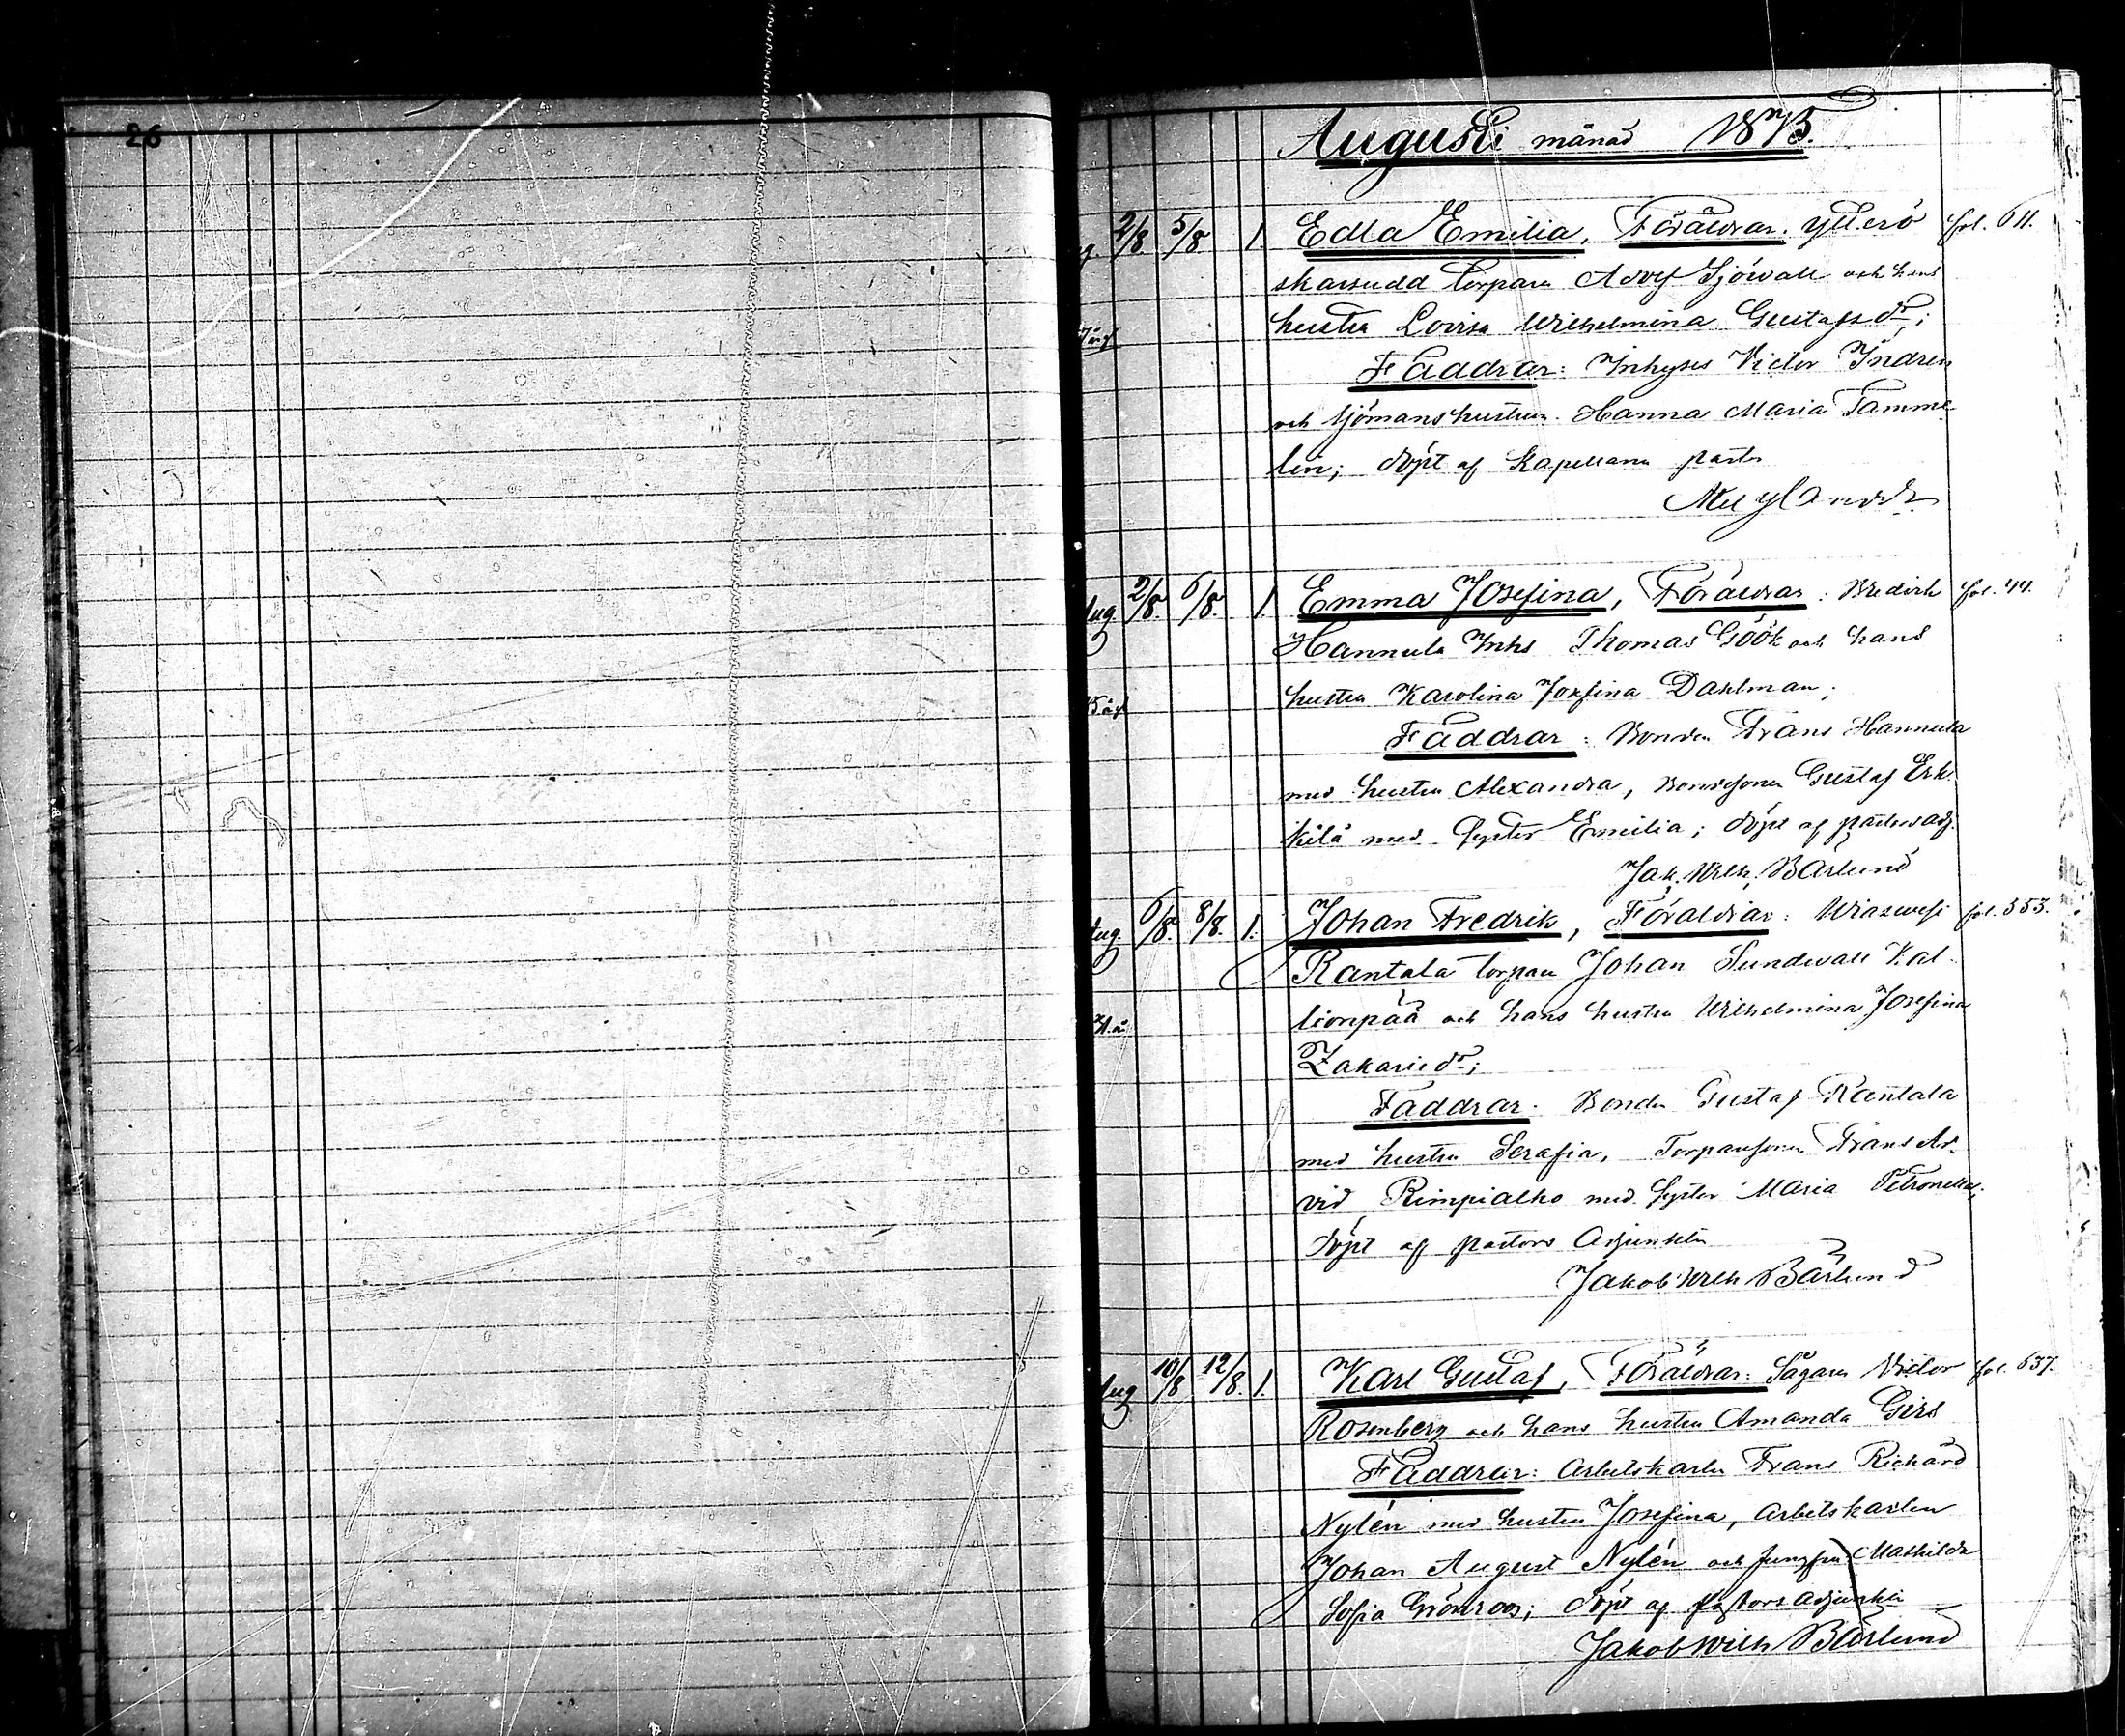 26
Augusti månad 1873.
2/8. 5/8. 1. Edla Emilia, Föräldrar. Ytterö fol. 611.
skarsudd torparn Adolf Sjöwall och hans
hustru Lovisa Wilhelmina Gustafsdr;
Faddrar: Inhyses Victor Indren
och Sjömanshustrun Hanna Maria Tamme
lin; döpt af Kapellanen pastor
Aug. 2/8. 6/8. 1. Emma Josefina, Föräldrar: Bredvik fol. 44.
Hannula Inhs Thomas Göök och hans
hustru Karolina Josefina Dahlman;
Faddrar: Bonden Frans Hannula
med hustru Alexandra, Bondesonen Gustaf Erk
kilä med Syster Emilia; döpt af pastorsadj.
Jak. Wilh. Bärlund
Aug. 6/8. 8/8. 1. Johan Fredrik, Föräldrar: Wiaswesi fol. 353.
Rantala torparn Johan Sundwall Kal-
lionpää och hans hustru Wilhelmina Josefina
Zakariedr;
Faddrar. Bonden Gustaf Rantala
med hustru Serafia, Torparesonen Frans Ar-
vid Rimpialho med Syster Maria Petronella;
döpt af pastors Adjunkten
Jakob Wilh Bärlund
Aug 10/8 12/8. 1. Karl Gustaf, Föräldrar: Sågaren Victor fol. 637.
Rosenberg och hans hustru Amanda Girs
Faddrar: Arbetskarlen Frans Richard
Nylén med hustru Josefina, Arbetskarlen
Johan August Nylén och Jungfru Mathilda
Sofia Grönroos; döpt af pastors adjunkten
Jakob Wilh Bärlund